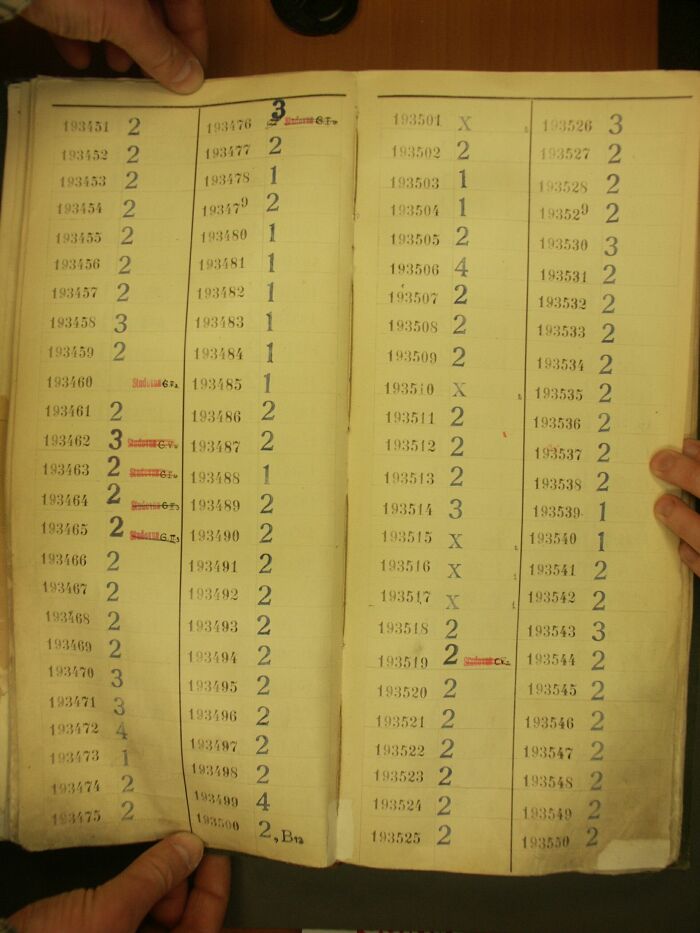 193451 2
193452 2
193453 2
193454 2
193455 2
193456 2
193457 2
193458 3
193459 2
193460
193461 2
193462 3
193463 2
193464 2
193465 2
193466 2
193467 2
193468 2
193469 2
193470 3
193471 3
193472 4
193473 1
193474 2
193475 2
193476 3
193477 2
193478 1
193479 2
193480 1
193481 1
193482 1
193483 1
193484 1
193485 1
193486 2
193487 2
193488 1
193489 2
193490 2
193491 2
193492 2
193493 2
193494 2
193495 2
193496 2
193497 2
193498 2
193499 4
193500 2, B12
193501 X
193502 2
193503 1
193504 1
193505 2
193506 4
193507 2
193508 2
193509 2
193510 X
193511 2
193512 2
193513 2
193514 3
193515 X
193516 X
193517 X
193518 2
193519 2
193520 2
193521 2
193522 2
193523 2
193524 2
193525 2
193526 3
193527 2
193528 2
193529 2
193530 3
193531 2
193532 2
193533 2
193534 2
193535 2
193536 2
193537 2
193538 2
193539 1
193540 1
193541 2
193542 2
193543 3
193544 2
193545 2
193546 2
193547 2
193548 2
193549 2
193550 2